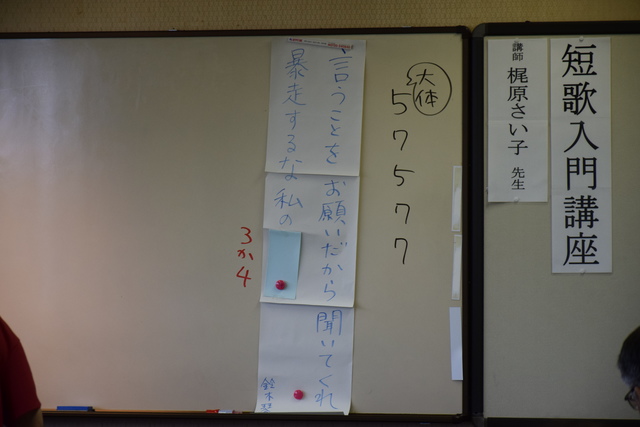 短歌入門講座
講師 梶原さい子 先生
大体
5 7 5 7 7
言うことをお願いだから聞いてくれ
暴走するな私の
鈴木
3か4